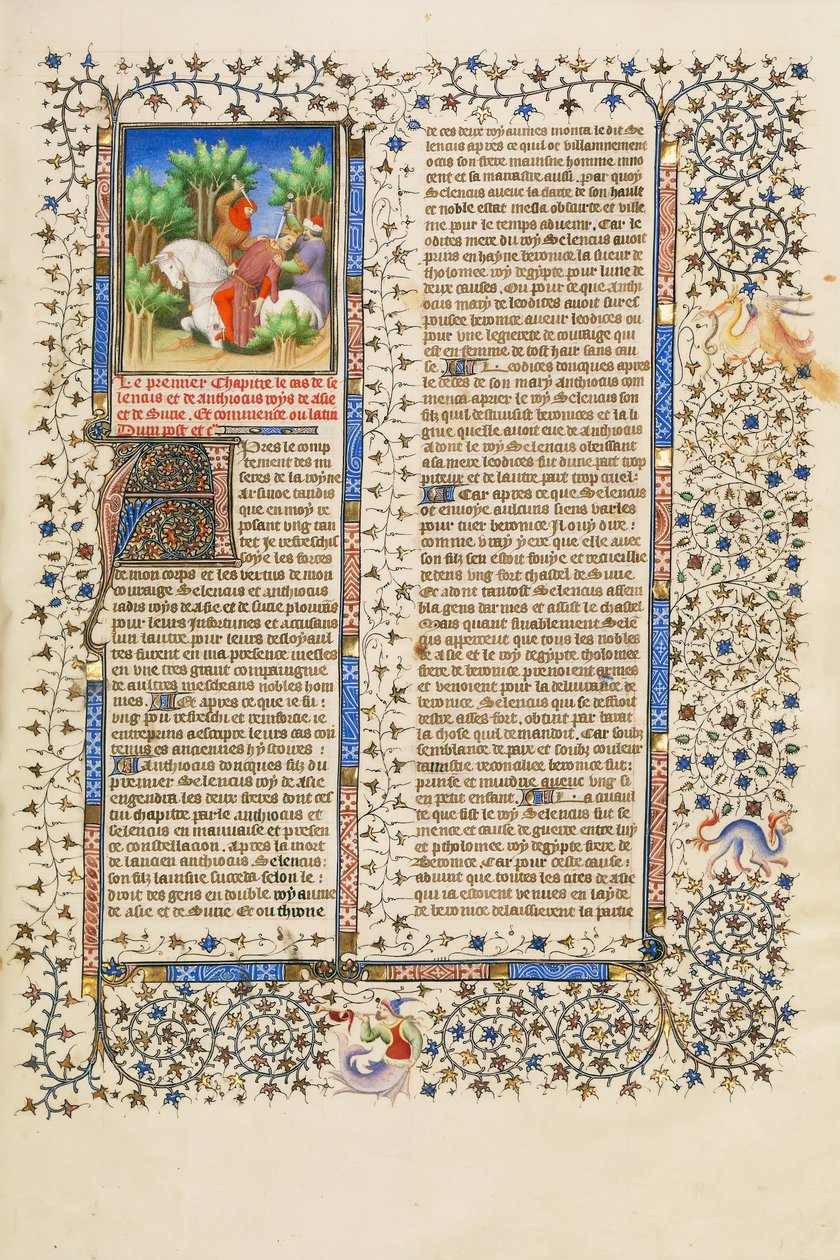 Le premier Chapitre le cas de se
lencus et de anthiocus roys de asie
et de Surie. Et commence ou latin
Dum post et cᵃ
Apres le comp
tement des mi
seres de la royne
arsinoe tandis
que en moy re
posant vng tan
tet Je refreschis
soye les forces
de mon corps et les vertus de mon
couraige Selencus et anthiocus
iadis roys de asie et de surie plourās
pour leurs Infortunes et accusans
lun lautre pour leurs desloyaul
tes furent en ma presence meslés
en vne tres grant compaignie
de aultres mescheans nobles hom
mes. Et apres ce que ie fu :
vng pou refreschi et reinforcé ie
entrepris a escripre leurs cas con
tenus es anciennes hystoires :
Anthiocus doncques filz du
premier Selencus roy de asie
engendra les deux freres dont ces
tui chapitre parle anthiocus et
selencus en mauuaise et perserse
ce constellacion. Apres la mort
de lancien anthiocus Selencus :
son filz lainsne succeda selon le :
droit des gens en double royaume
de asie et de Surie Et ou throne
de ces deux royaumes monta le dit Se
lencus apres ce quil ot villainnement
occis son frere mainsne homme inno
cent et sa marastre aussi. par quoy
Selencus aueuc la clarte de son hault
et noble estat mesla obscurte et ville
nie pour le temps aduenir. Car le
odites mere du roy Selencus auoit
prins en hayne beronice la sueur de
tholomee roy degypte pour lune de
deux causes. Ou pour ce que anthi
ocus mary de leodites auoit sures
pousee beronice aueuc leodices ou
pour vne legierete de couraige qui
est en femme de tost hair sans cau
se. Leodices doncques apres
le deces de son mary anthiocus com
menca aprier le roy Selencus son
filz quil destruisist beronices et la li
gnie quelle auoit eue de anthiocus
adont le roy Selencus obeissant
a sa mere leodices fut dune part trop
piteux et de lautre part trop cruel :
Car apres ce que Selencus
ot enuoye aulcuns siens varles
pour tuer beronice Il ouy dire :
comme vray yere que elle auec
son filz sen estoit fouye et recueillie
dedens vng fort chastel de Surie.
Et adont tantost Selencus assem
bla gens darmes et assist le chastel
Mais quant finablement Sele
cus apperceut que tous les nobles
de asie et le roy degypte tholomee
frere de beronice prenoient armes
et venoient pour la deliurance de
beronice. Selencus qui se deffioit
destre asses fort, obtint par barat
la chose quil demandoit. Car soubz
semblance de paix et soubz couleur
damistie reconciliee beronice fut :
prinse et murdrie aueuc vng si
en petit enfant. La cruaul
te que fist le roy Selencus fut se
mence et cause de guerre entre luy
et ptholomee roy degypte frere de
Beronice. Car pour ceste cause :
aduint que toutes les cites de asie
qui ia estoient venues en layde
de beronice delaisserent la partie